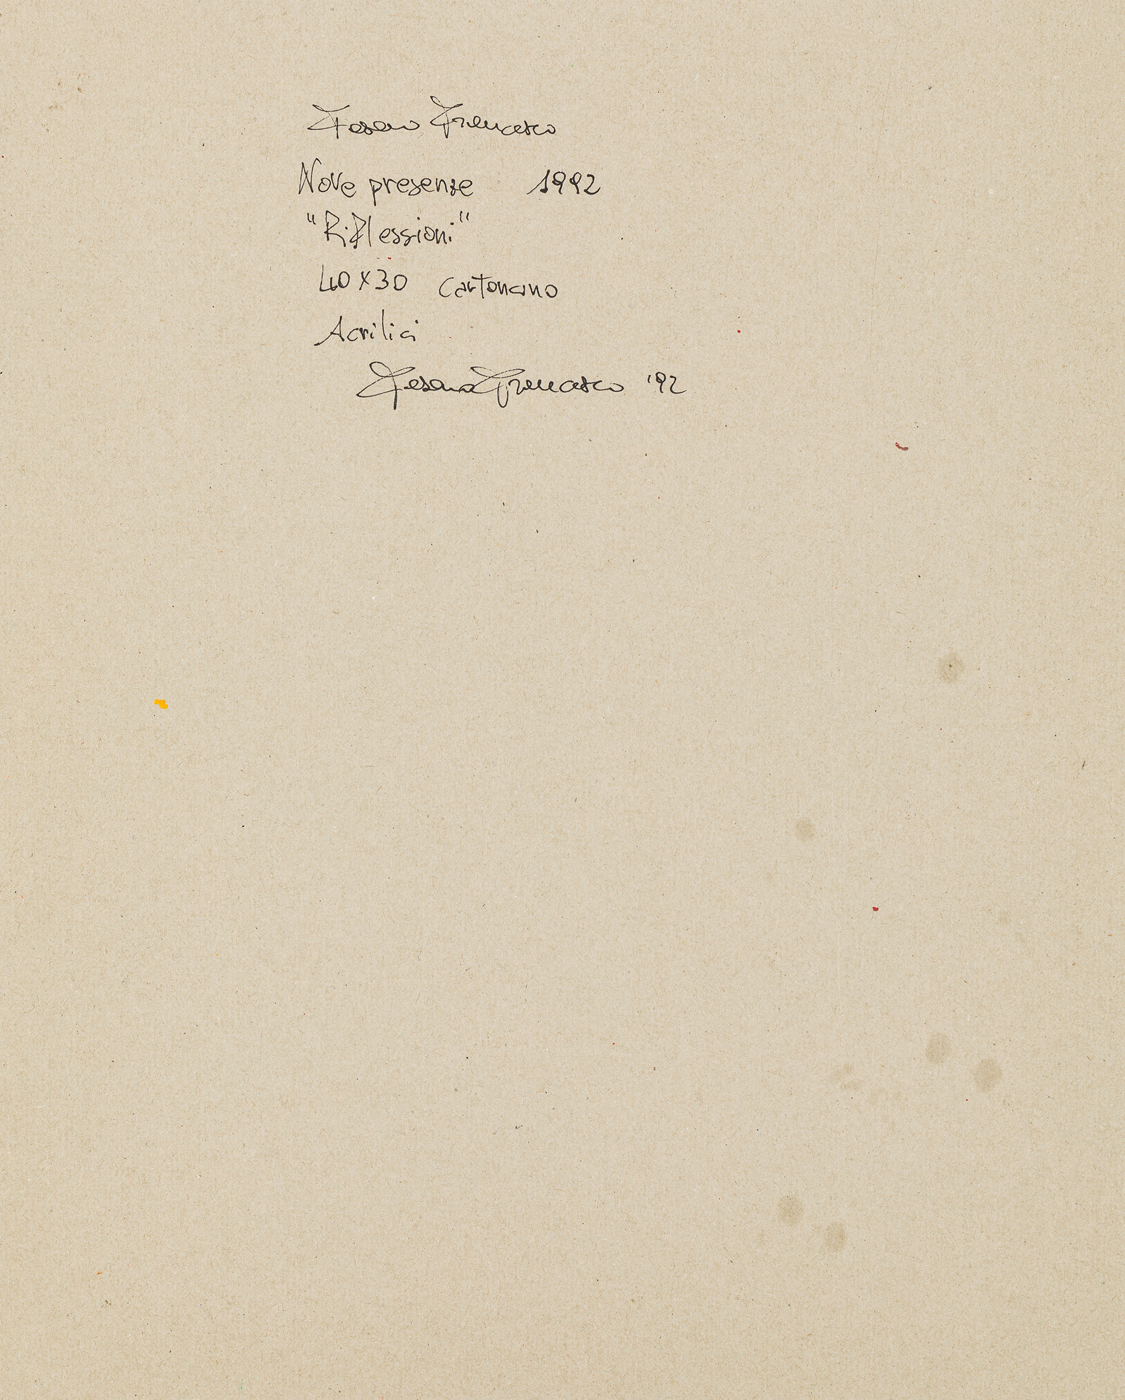 Fesano Francesco
Nove presenze 1992
"Riflessioni"
40x30 Cartoncino
Acrilici
Fesano Francesco '92